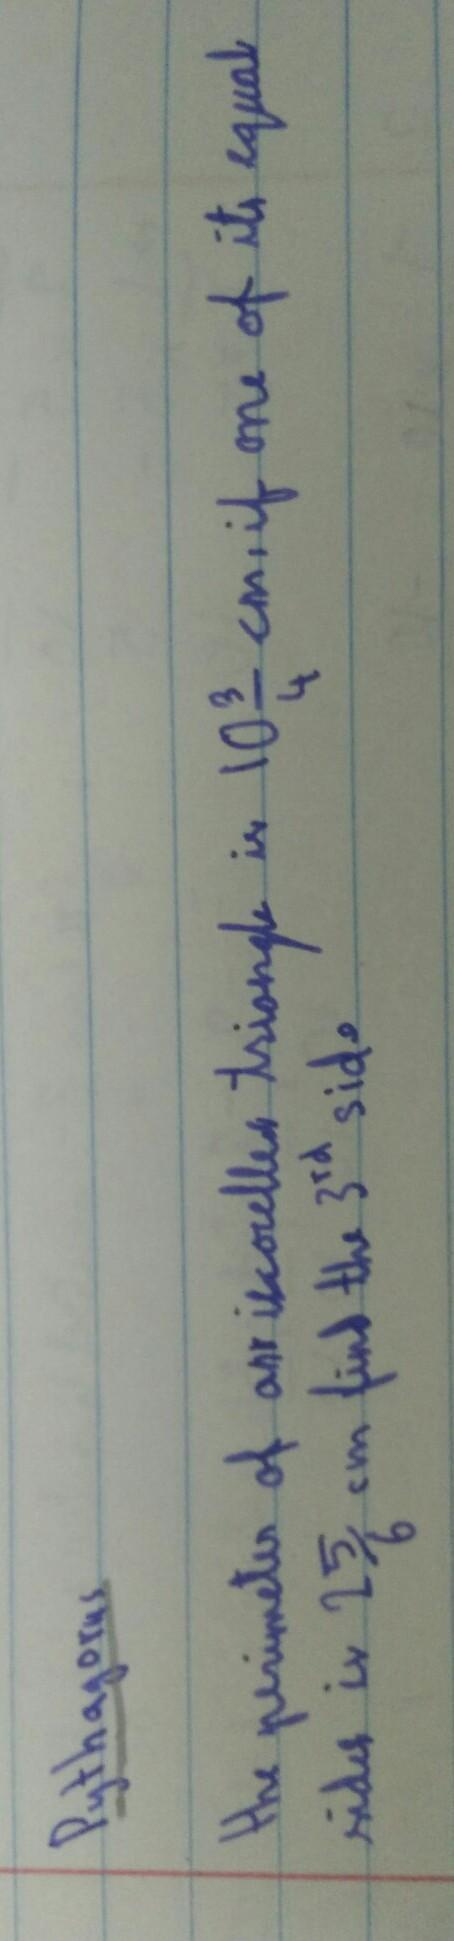 Pythagorus
the perimeter of an iscorelles triangle is 10 3/4 cm, if one of its equal
sides is 2 5/6 cm find the 3rd side